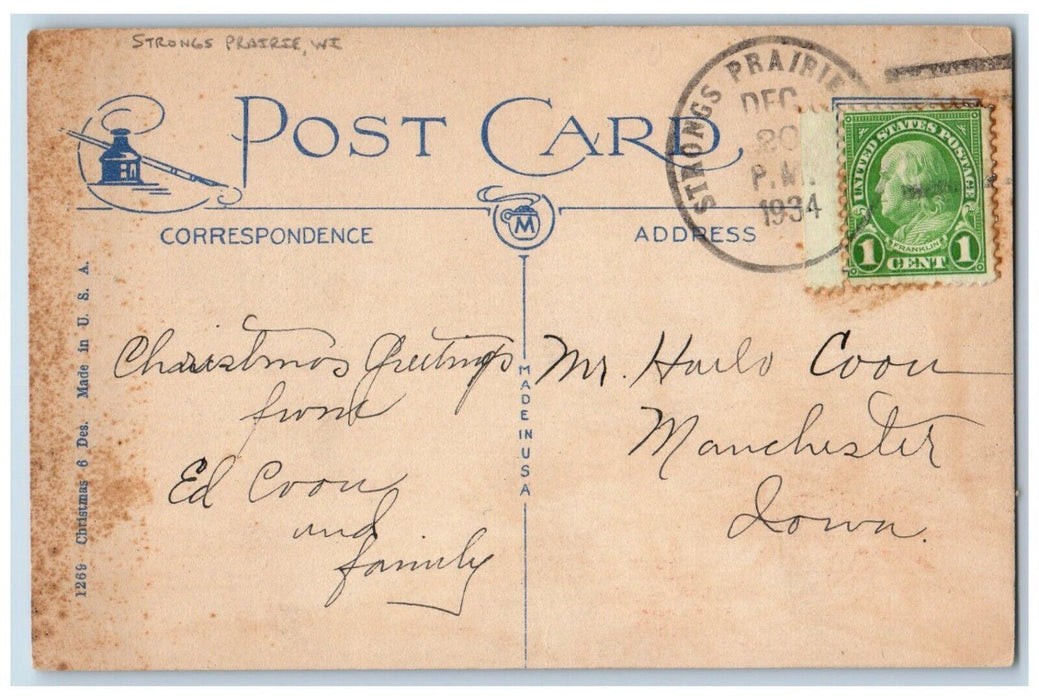 STRONGS PRAIRIE, WI
POST CARD
STRONGS PRAIRIE
DEC
20
P.M.
1934
UNITED STATES POSTAGE
FRANKLIN
1 CENT 1
M
CORRESPONDENCE
ADDRESS
1269 Christmas 6 Des. Made in U. S. A.
MADE IN USA
Christmas Greetings
from
Ed Coon
and
family
Mr. Harlo Coon
Manchester
Iowa.